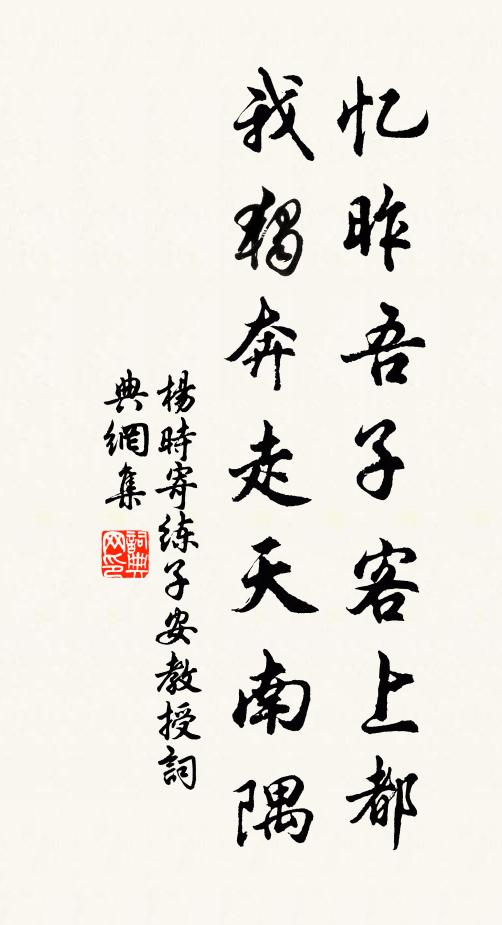 忆昨吾子客上都
我独奔走天南隅
楊時寄练子安教授詞
典網集
詞典网印